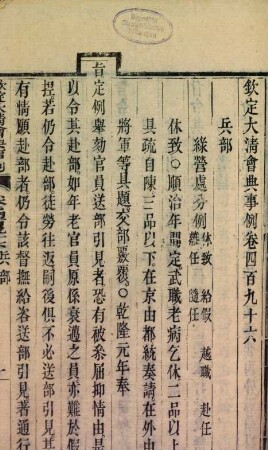 欽定大清會典事例卷四百九十六
兵部
綠營處分例 休致 給假 越職 赴任
離任 隨任
休致〇順治年間定武職老病乞休二品以上
具疏自陳三品以下在京由都統奏請在外由
將軍等具題交部覈覆〇乾隆元年奉
旨定例舉劾官員送部引見者恐有被參屈抑情由是
以令其赴部如年老官員原係衰邁之員亦難於假
捏若仍令赴部徒勞往返嗣後俱不必送部引見其
有情願赴部者仍令該督撫給咨送部引見著通行
欽定大清會典事例
兵部
一